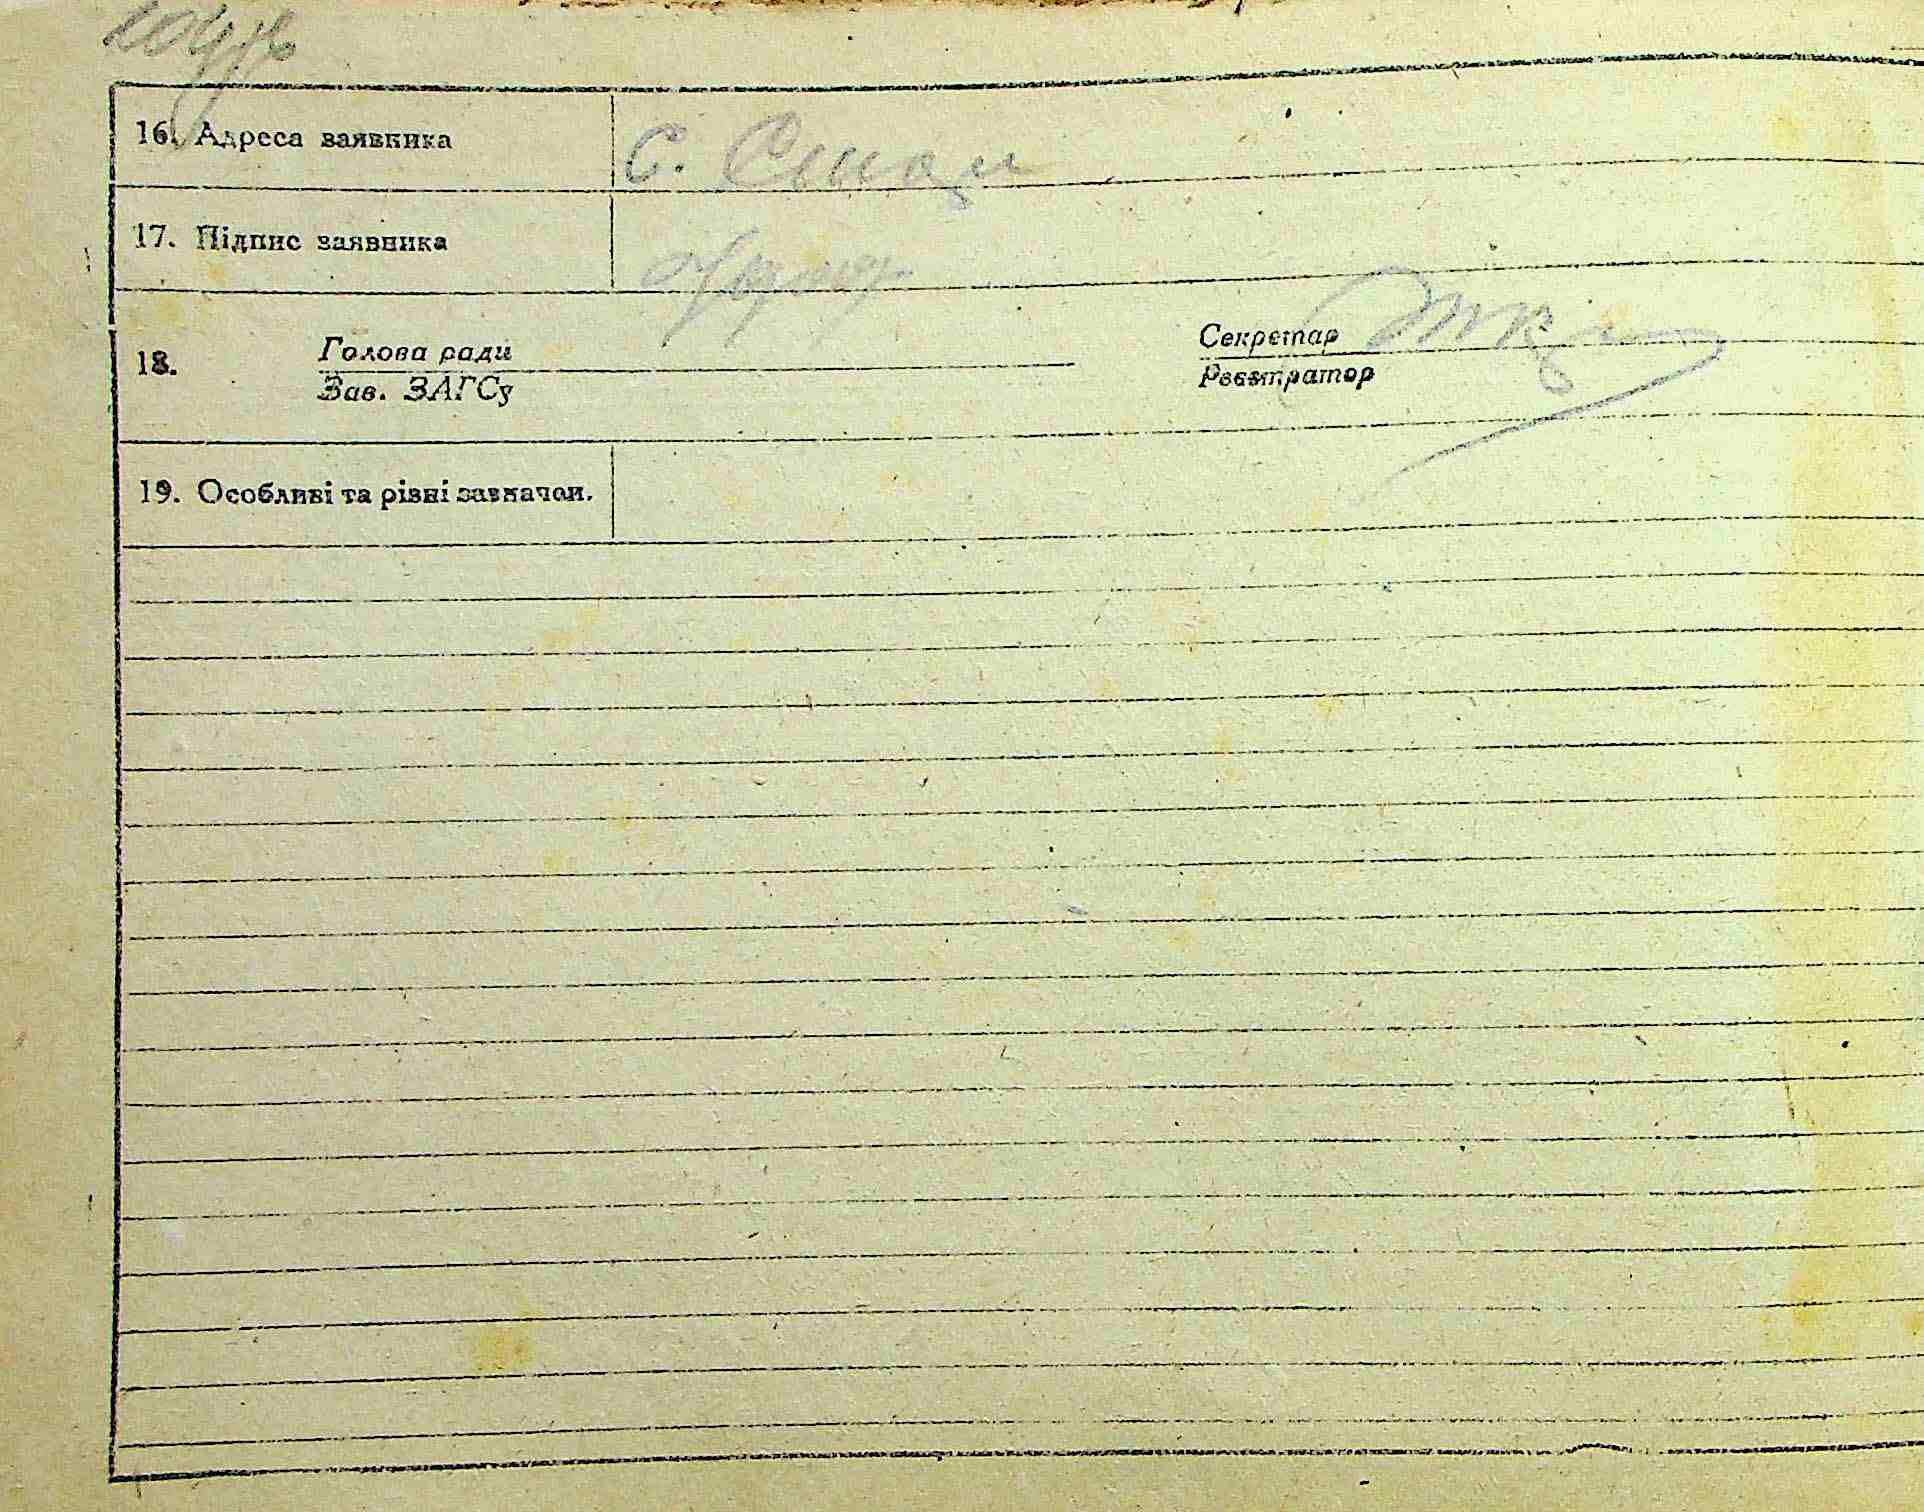 16. Адреса заявника
с.
17. Підпис заявника
18. Голова ради Секретар
Зав. ЗАГСу Реєстратор
19. Особливі та різні зазначен.